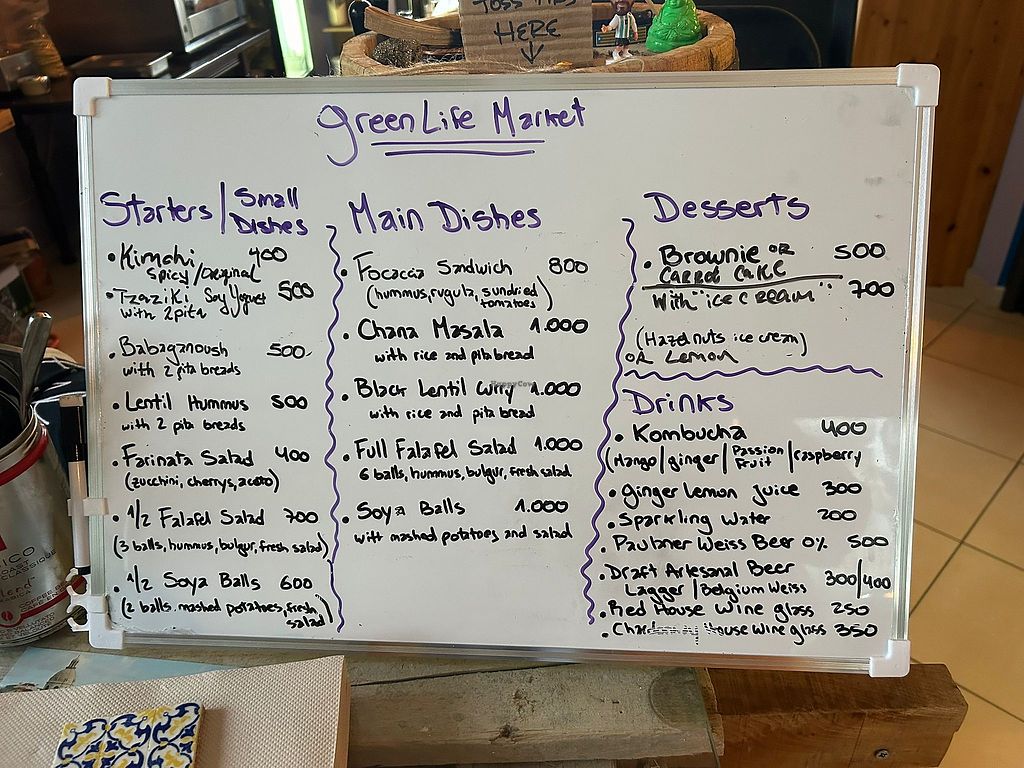 TOSS TIPS
HERE
green Life Market
Starters / Small Dishes
• Kimchi 400
Spicy / Original
• Tzaziki Soy Yogurt 500
with 2 pita
• Babaganoush 500
with 2 pita breads
• Lentil Hummus 500
with 2 pita breads
• Farinata Salad 400
(zucchini, cherrys, aceto)
• 1/2 Falafel Salad 700
(3 balls, hummus, bulgur, fresh salad)
• 1/2 Soya Balls 600
(2 balls, mashed potatoes, fresh salad)
Main Dishes
• Focaccia Sandwich 800
(hummus, rugula, sundried tomatoes)
• Chana Masala 1.000
with rice and pita bread
• Black Lentil Curry 1.000
with rice and pita bread
• Full Falafel Salad 1.000
6 balls, hummus, bulgur, fresh salad
• Soya Balls 1.000
with mashed potatoes and salad
Desserts
• Brownie OR 500
CARROT CAKE
With "ice cream" 700
(Hazelnuts ice cream)
OR Lemon
Drinks
• Kombucha 400
(Mango / ginger / Passion Fruit / raspberry
• ginger Lemon juice 300
• Sparkling Water 200
• Paulaner Weiss Beer 0% 500
• Draft Artesanal Beer
Lagger / Belgium Weiss 300/400
• Red House Wine glass 250
• Chardonnay House wine glass 350
HappyCow